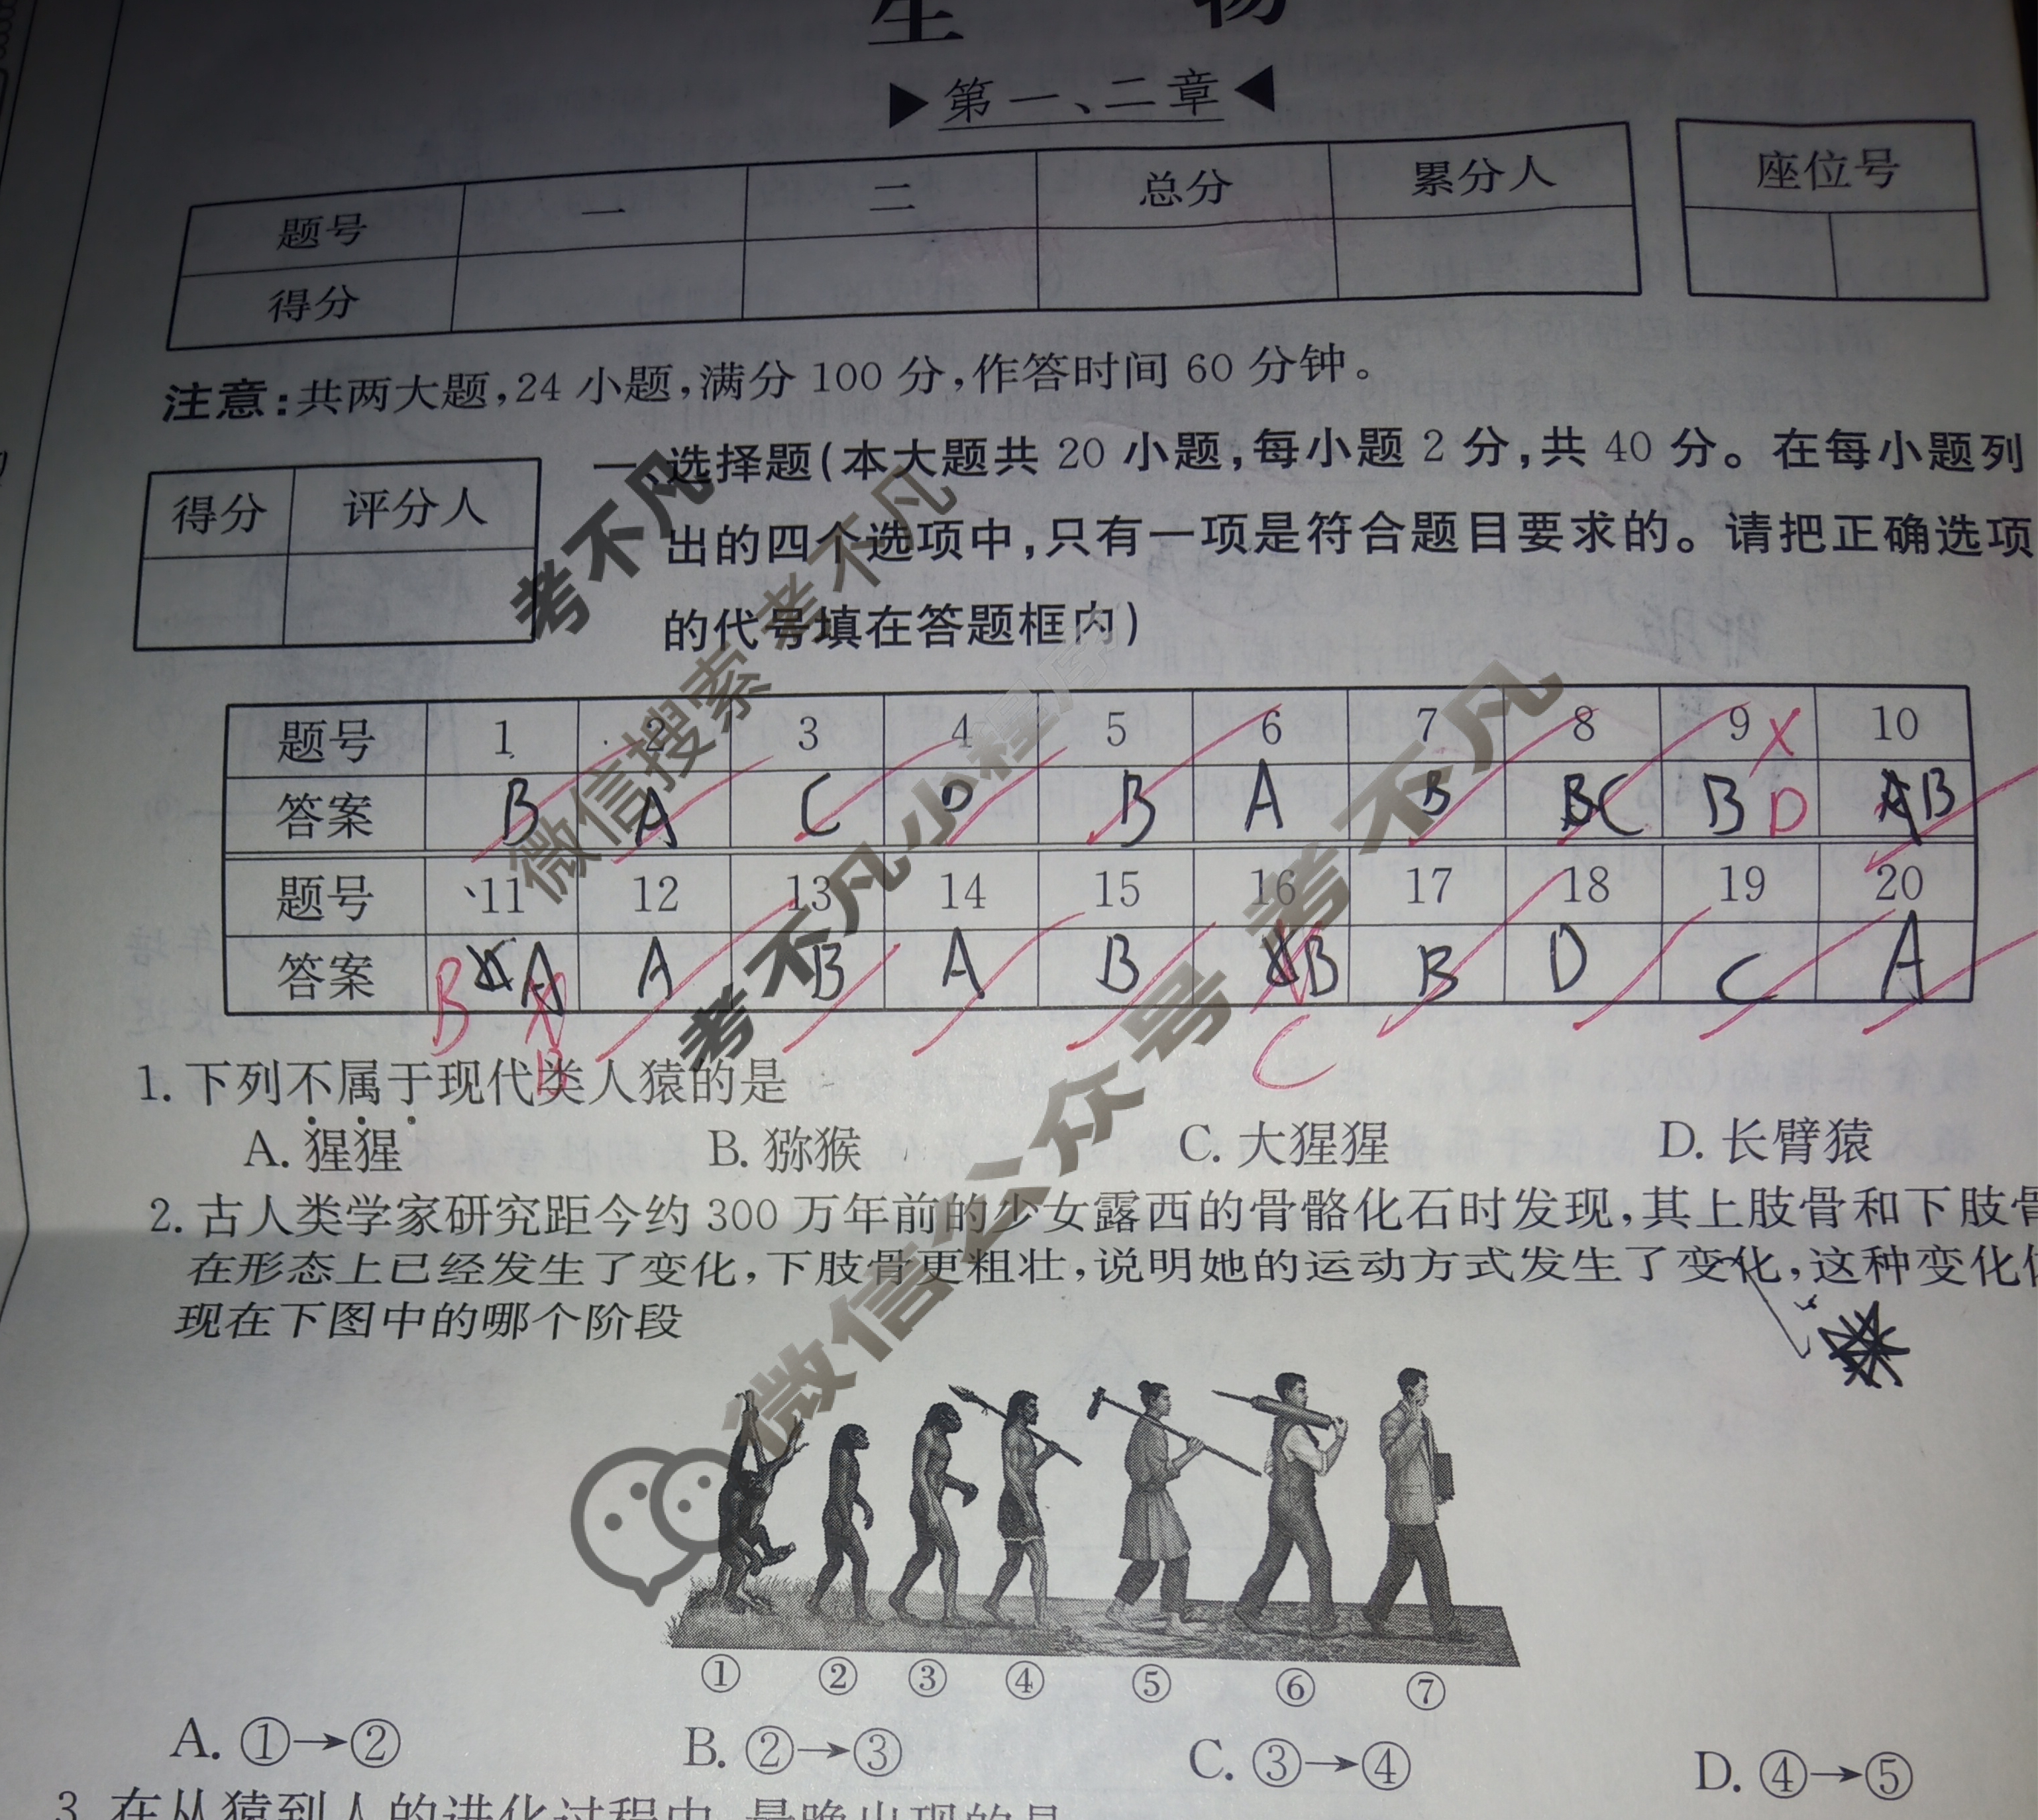 生 物
▶第一、二章◀
题号 一 二 总分 累分人 座位号
得分
注意:共两大题,24小题,满分100分,作答时间60分钟。
得分 评分人
一、选择题(本大题共20小题,每小题2分,共40分。在每小题列
出的四个选项中,只有一项是符合题目要求的。请把正确选项
的代号填在答题框内)
题号 1 2 3 4 5 6 7 8 9 10
答案 B A C D B A B C B D B
题号 11 12 13 14 15 16 17 18 19 20
答案 B A A B A B B B D C A
B C
1. 下列不属于现代类人猿的是
A. 猩猩 B. 猕猴 C. 大猩猩 D. 长臂猿
2. 古人类学家研究距今约300万年前的少女露西的骨骼化石时发现,其上肢骨和下肢骨
在形态上已经发生了变化,下肢骨更粗壮,说明她的运动方式发生了变化,这种变化体
现在下图中的哪个阶段
① ② ③ ④ ⑤ ⑥ ⑦
A. ①→② B. ②→③ C. ③→④ D. ④→⑤
3. 在从猿到人的进化过程中,最晚出现的是
考不凡
微信搜索 考不凡
考不凡小程序
微信公众号 考不凡